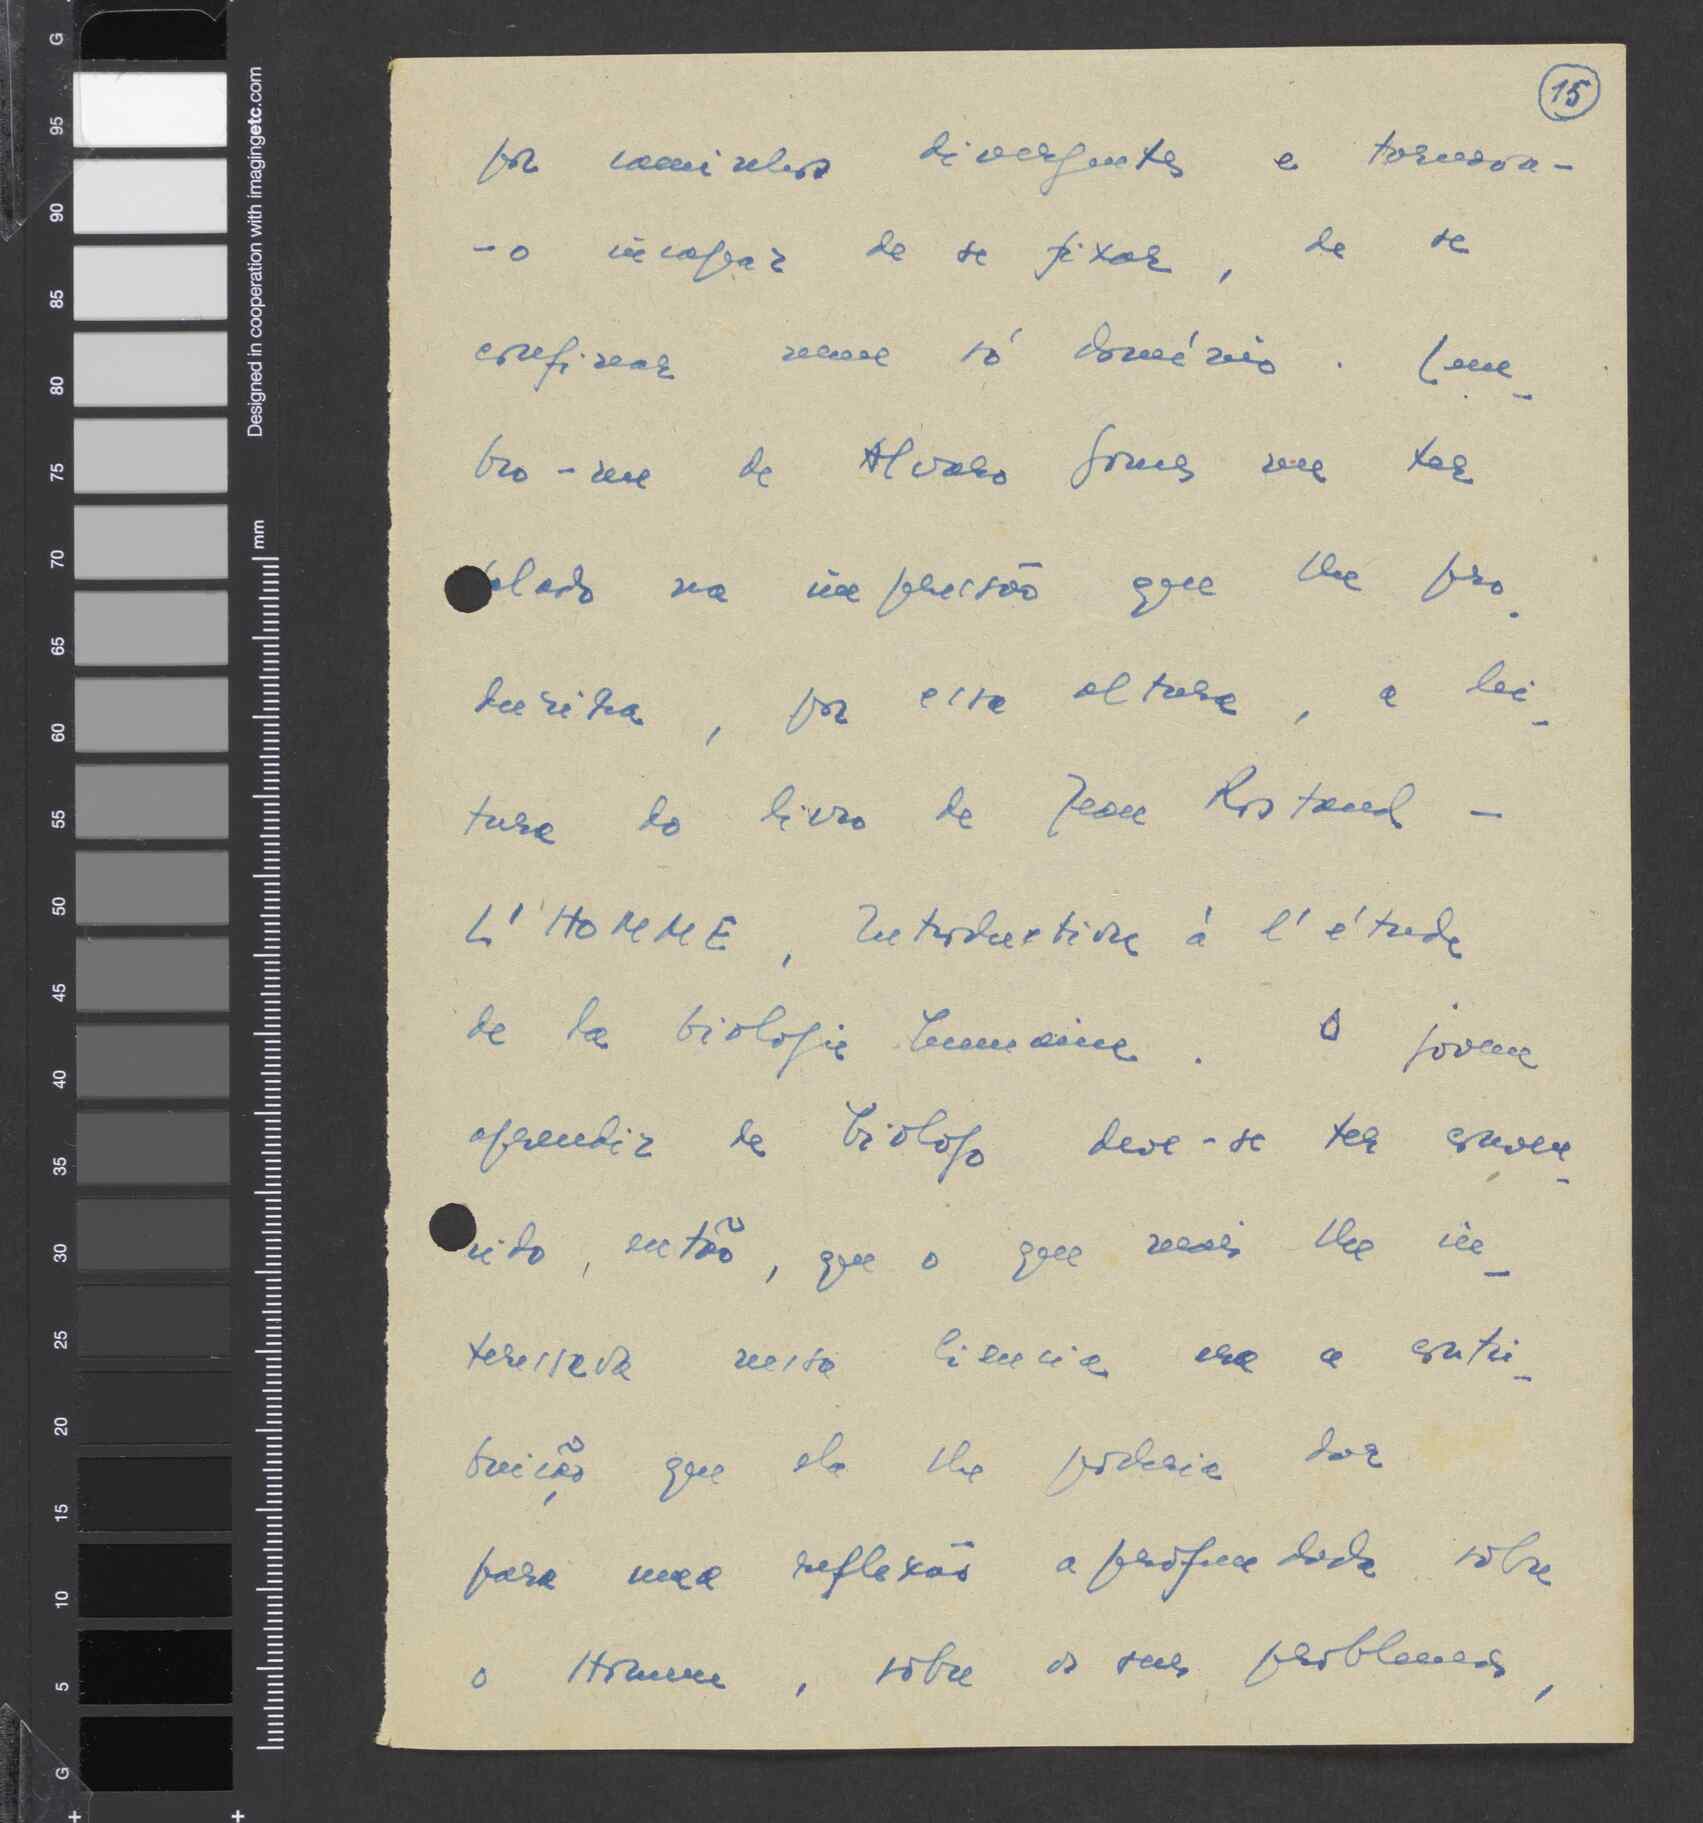 15
por caminhos divergentes e tornava-
-o incapaz de se fixar, de se
confinar num só domínio. Lem-
bro-me de Alvaro Gomes me ter
falado na impressão que lhe pro-
duzira, por essa altura, a lei-
tura do livro de Jean Rostand -
L'HOMME, Introduction à l'étude
de la biologie humaine. O jovem
aprendiz de biólogo deve-se ter conven-
cido, então, que o que mais lhe in-
teressava nessa ciência era a contri-
buição que ela lhe poderia dar
para uma reflexão aprofundada sôbre
o Homem, sôbre os seus problemas,
G
95
90
85
80
75
70
65
60
55
50
45
40
35
30
25
20
15
10
5
G
Designed in cooperation with imagingetc.com
mm